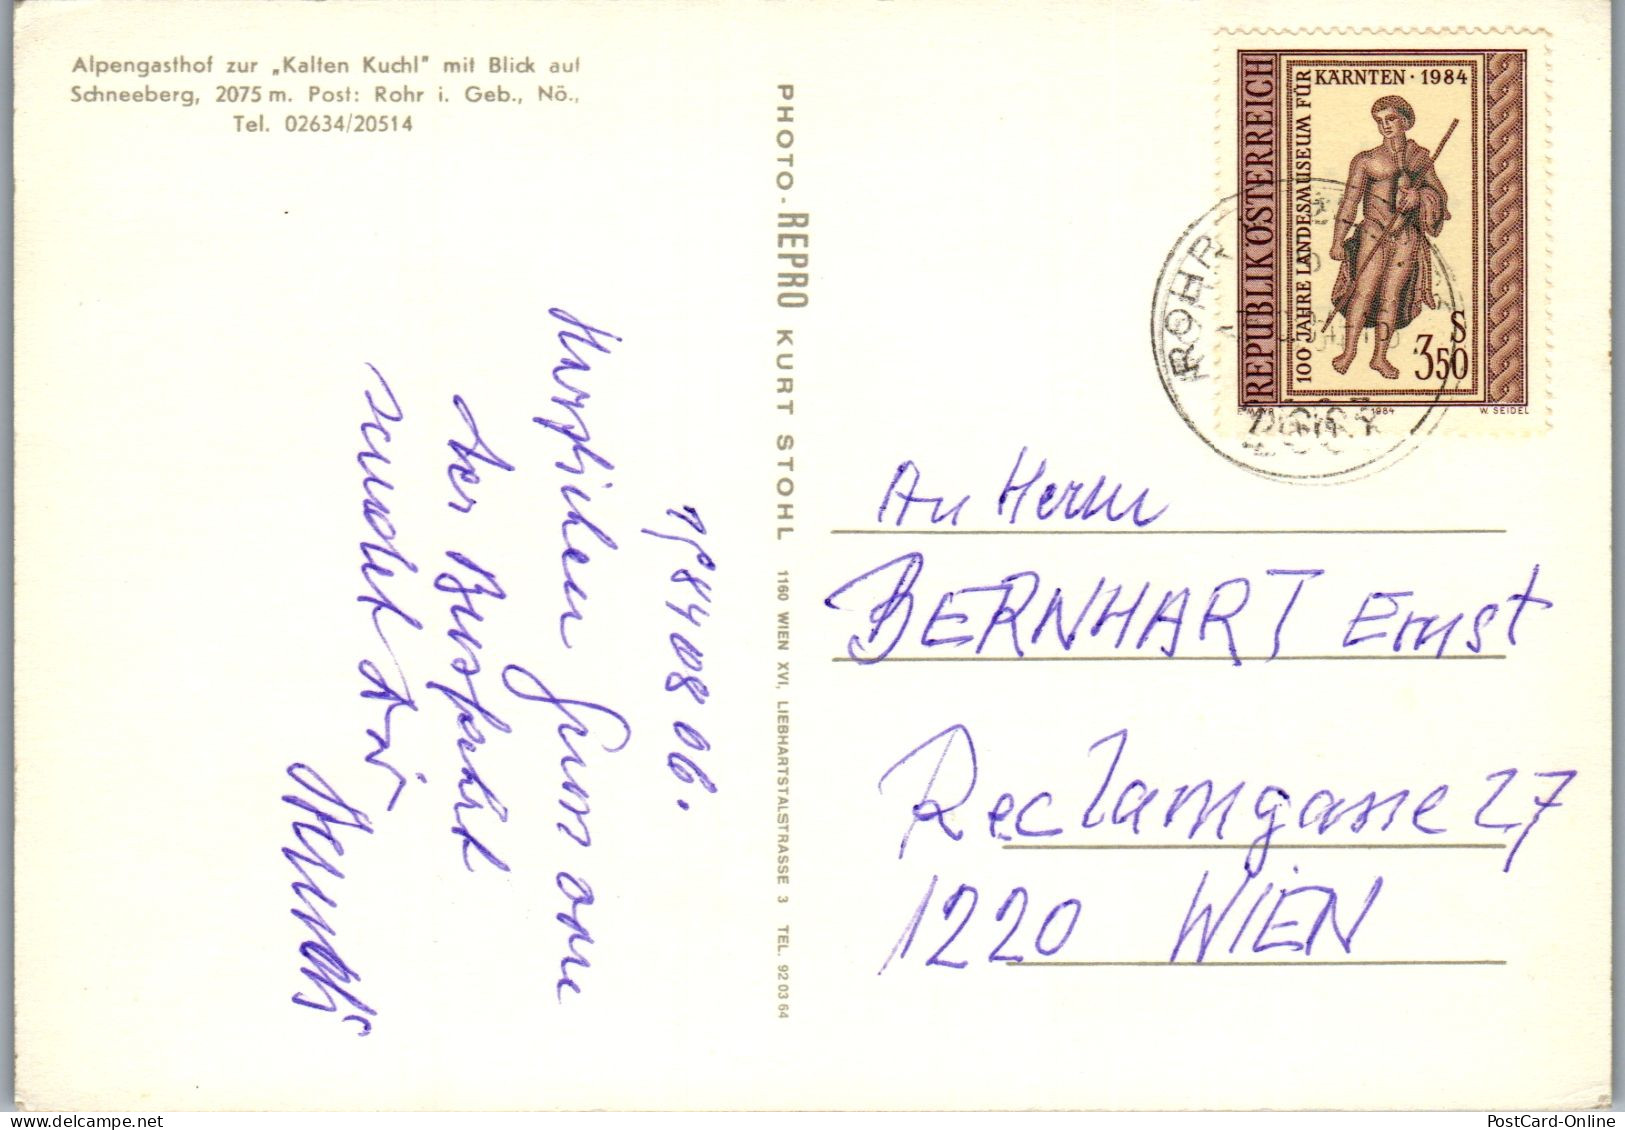 Alpengasthof zur „Kalten Kuchl" mit Blick auf
Schneeberg, 2075 m. Post: Rohr i. Geb., Nö.,
Tel. 02634/20514
PHOTO-REPRO KURT STOHL 1160 WIEN XVI, LIEBHARTSTALSTRASSE 3 TEL. 92 03 64
REPUBLIK ÖSTERREICH
100 JAHRE LANDESMUSEUM FÜR
KÄRNTEN · 1984
S
3.50
E. MAYR
1984
W. SEIDEL
ROHR
1984 08 06.
Herzlichen Gruss von
der Busfahrt
sendet dir
An Herrn
BERNHART Ernst
Reclamgasse 27
1220 WIEN
PostCard-Online
www.delcampe.net